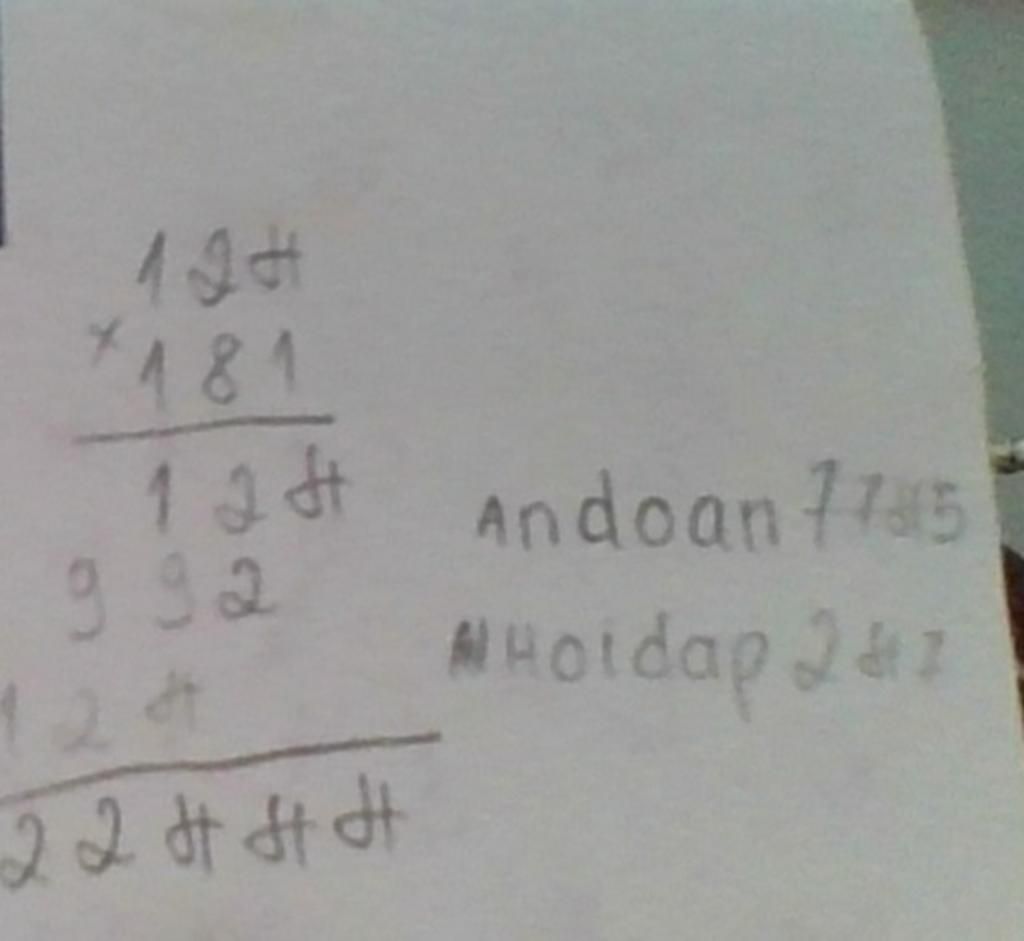 124
× 181
124
992
124
22444
Andoan 7745
NHoidap 247